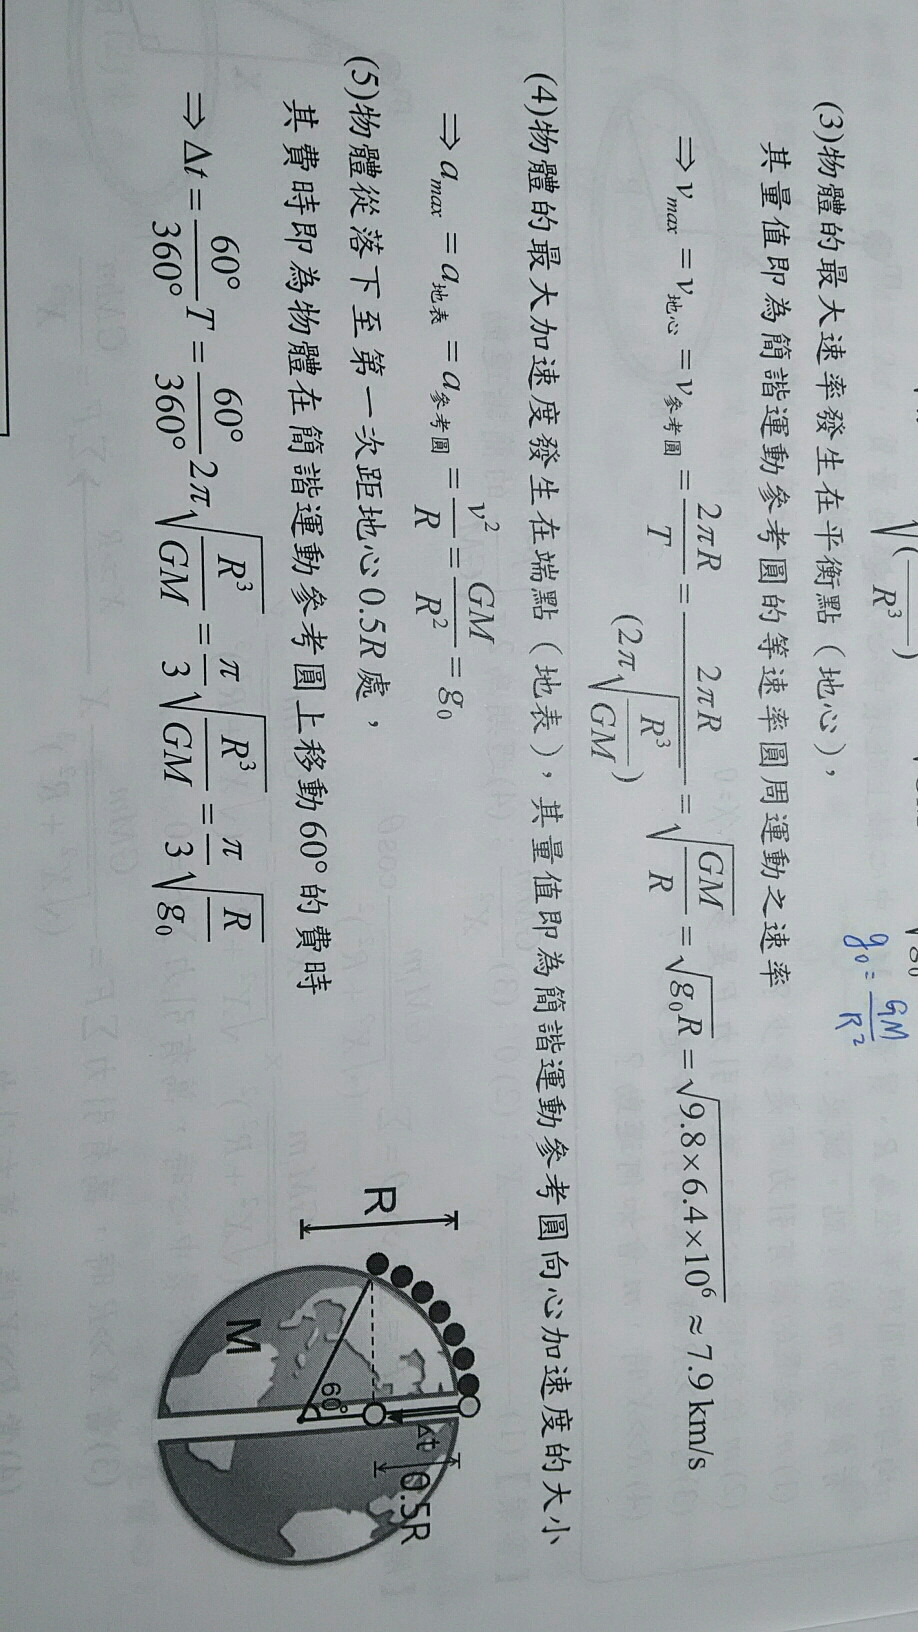 √(—/R³)
g₀
g₀ = GM/R²
(3)物體的最大速率發生在平衡點（地心），
其量值即為簡諧運動參考圓的等速率圓周運動之速率
⇒ v_max = v_地心 = v_參考圓 = 2πR/T = 2πR/(2π√(R³/GM)) = √(GM/R) = √(g₀R) = √(9.8×6.4×10⁶) ≈ 7.9 km/s
(4)物體的最大加速度發生在端點（地表），其量值即為簡諧運動參考圓向心加速度的大小
⇒ a_max = a_地表 = a_參考圓 = v²/R = GM/R² = g₀
(5)物體從落下至第一次距地心0.5R處，
其費時即為物體在簡諧運動參考圓上移動60°的費時
⇒ Δt = 60°/360° T = 60°/360° 2π√(R³/GM) = π/3 √(R³/GM) = π/3 √(R/g₀)
R
Δt
0.5R
60°
M